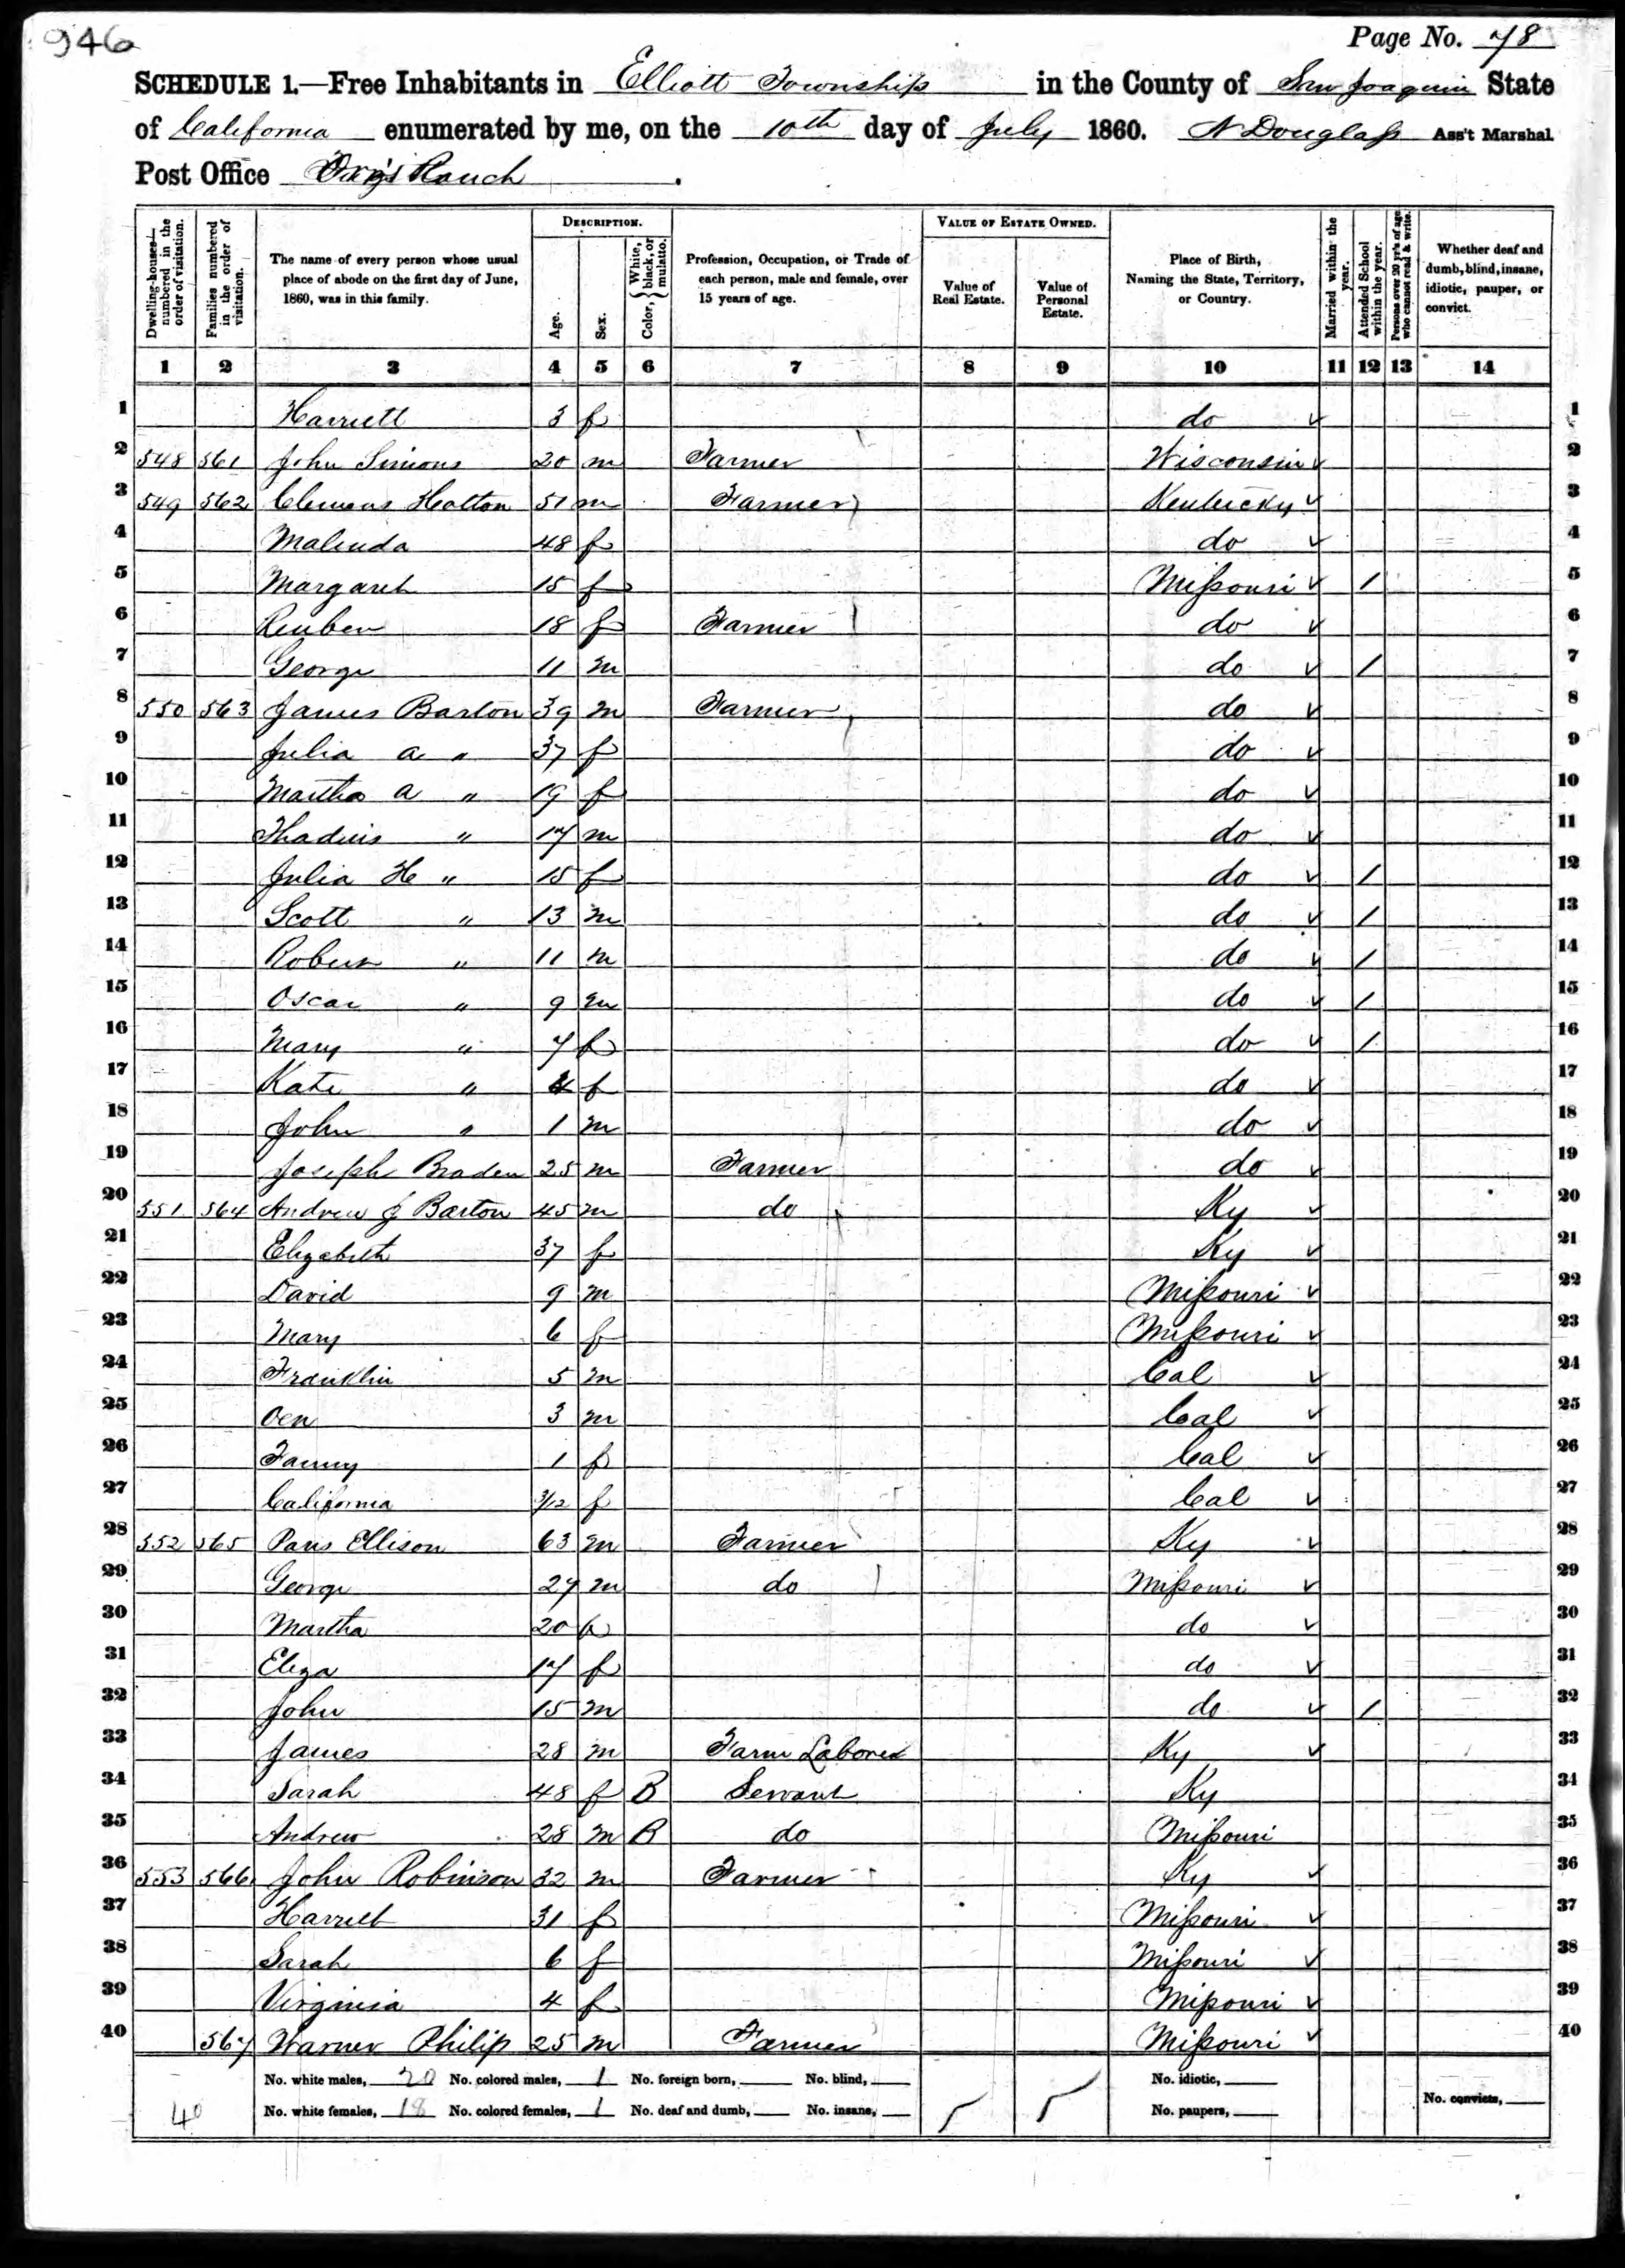 946
Page No. 78
SCHEDULE 1.—Free Inhabitants in Elliott Township in the County of San Joaquin State
of California enumerated by me, on the 10th day of July 1860. N Douglass Ass't Marshal.
Post Office Ranch
Dwelling-houses—numbered in the order of visitation.
Families numbered in the order of visitation.
The name of every person whose usual place of abode on the first day of June, 1860, was in this family.
DESCRIPTION.
Age.
Sex.
Color, { White, black, or mulatto.
Profession, Occupation, or Trade of each person, male and female, over 15 years of age.
VALUE OF ESTATE OWNED.
Value of Real Estate.
Value of Personal Estate.
Place of Birth, Naming the State, Territory, or Country.
Married within the year.
Attended School within the year.
Persons over 20 yr's of age who cannot read & write.
Whether deaf and dumb, blind, insane, idiotic, pauper, or convict.
1 2 3 4 5 6 7 8 9 10 11 12 13 14
1 Harriett 3 f do ✓ 1
2 548 561 John Simons 20 m Farmer Wisconsin ✓ 2
3 549 562 Clemens Holton 51 m Farmer Kentucky ✓ 3
4 Malinda 48 f do ✓ 4
5 Margaret 15 f Missouri ✓ / 5
6 Reuben 18 f Farmer do ✓ 6
7 George 11 m do ✓ / 7
8 550 563 James Barton 39 m Farmer do ✓ 8
9 Julia a " 37 f do ✓ 9
10 Martha a " 19 f do ✓ 10
11 Thadius " 17 m do ✓ 11
12 Julia H " 15 f do ✓ / 12
13 Scott " 13 m do ✓ / 13
14 Robert " 11 m do ✓ / 14
15 Oscar " 9 m do ✓ / 15
16 Mary " 7 f do ✓ / 16
17 Kate " 4 f do ✓ 17
18 John " 1 m do ✓ 18
19 Joseph Braden 25 m Farmer do ✓ 19
20 551 564 Andrew J Barton 45 m do Ky ✓ 20
21 Elizabeth 37 f Ky ✓ 21
22 David 9 m Missouri ✓ 22
23 Mary 6 f Missouri ✓ 23
24 Franklin 5 m Cal ✓ 24
25 Oen 3 m Cal ✓ 25
26 Fanny 1 f Cal ✓ 26
27 California 3/12 f Cal ✓ 27
28 552 565 Paris Ellison 63 m Farmer Ky ✓ 28
29 George 27 m do Missouri ✓ 29
30 Martha 20 f do ✓ 30
31 Eliza 17 f do ✓ 31
32 John 15 m do ✓ / 32
33 James 28 m Farm Laborer Ky ✓ 33
34 Sarah 48 f B Servant Ky 34
35 Andrew 28 m B do Missouri 35
36 553 566 John Robinson 32 m Farmer Ky ✓ 36
37 Harriet 31 f Missouri ✓ 37
38 Sarah 6 f Missouri ✓ 38
39 Virginia 4 f Missouri ✓ 39
40 567 Warner Philip 25 m Farmer Missouri ✓ 40
No. white males, 20 No. colored males, 1 No. foreign born, No. blind, No. idiotic,
40 No. white females, 18 No. colored females, 1 No. deaf and dumb, No. insane, No. paupers, No. convicts,